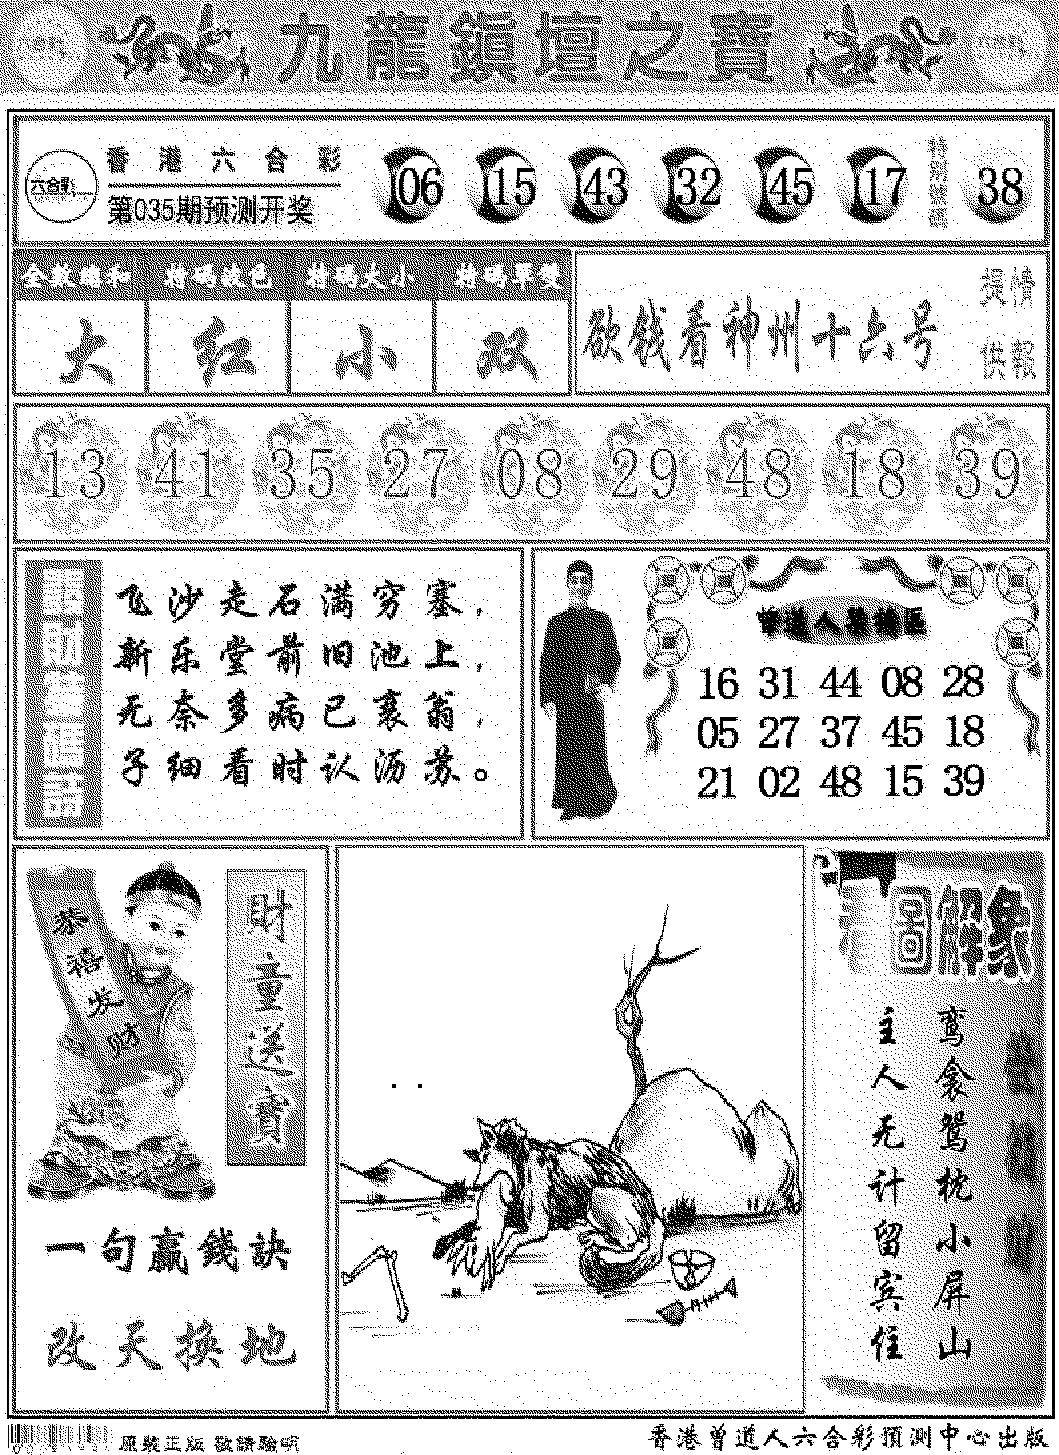 九龍鎮壇之寶
六合彩
香港六合彩
第035期预测开奖
06 15 43 32 45 17
特別號碼
38
全數總和 特碼波色 特碼大小 特碼單雙
大 红 小 双
欲钱看神州十六号
提供
情報
13 41 35 27 08 29 48 18 39
飞沙走石满穷塞，
新乐堂前旧池上，
无奈多病已衰翁，
子细看时认沥苏。
16 31 44 08 28
05 27 37 45 18
21 02 48 15 39
恭禧发财
財童送寶
一句赢錢訣
改天换地
看圖解象
鸾衾鸳枕小屏山
主人无计留宾住
原裝正版 敬請驗明
香港曾道人六合彩預測中心出版